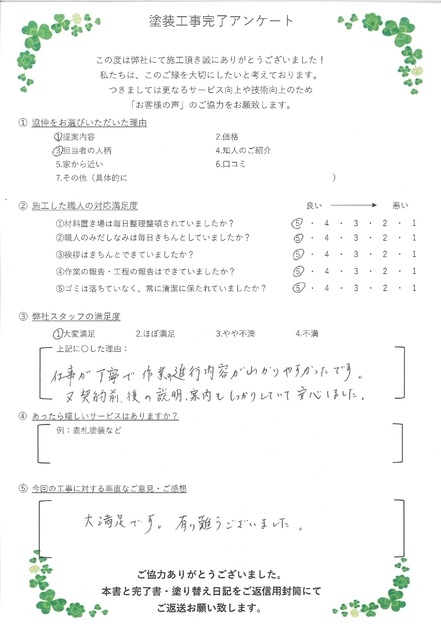 塗装工事完了アンケート
この度は弊社にて施工頂き誠にありがとうございました！
私たちは、このご縁を大切にしたいと考えております。
つきましては更なるサービス向上や技術向上のため
「お客様の声」のご協力をお願い致します。
① 協伸をお選びいただいた理由
①提案内容 2.価格
③担当者の人柄 4.知人のご紹介
5.家から近い 6.口コミ
7.その他（具体的に ）
② 施工した職人の対応満足度 良い 悪い
①材料置き場は毎日整理整頓されていましたか？ ⑤ ・ 4 ・ 3 ・ 2 ・ 1
②職人のみだしなみは毎日きちんとしていましたか？ ⑤ ・ 4 ・ 3 ・ 2 ・ 1
③挨拶はきちんとできていましたか？ ⑤ ・ 4 ・ 3 ・ 2 ・ 1
④作業の報告・工程の報告はできていましたか？ ⑤ ・ 4 ・ 3 ・ 2 ・ 1
⑤ゴミは落ちていなく、常に清潔に保たれていましたか？ ⑤ ・ 4 ・ 3 ・ 2 ・ 1
③ 弊社スタッフの満足度
①大変満足 2.ほぼ満足 3.やや不満 4.不満
上記に〇した理由：
仕事が丁寧で作業の進行内容がわかりやすかったです。
又契約前、後の説明、案内もしっかりしていて安心しました。
④ あったら嬉しいサービスはありますか？
例：表札塗装など
⑤ 今回の工事に対する率直なご意見・ご感想
大満足です。有り難うございました。
ご協力ありがとうございました。
本書と完了書・塗り替え日記をご返信用封筒にて
ご返送お願い致します。